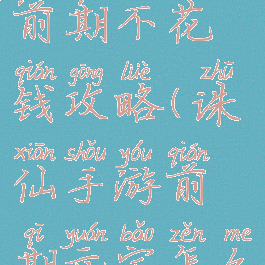 前期不花
qián gōng lüè zhū
钱攻略(诛
xiān shǒu yóu qián
仙手游前
qī yuán bǎo zěn me
期元宝怎么